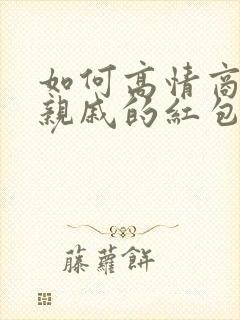 如何高情商
親戚的紅包
藤蘿餅